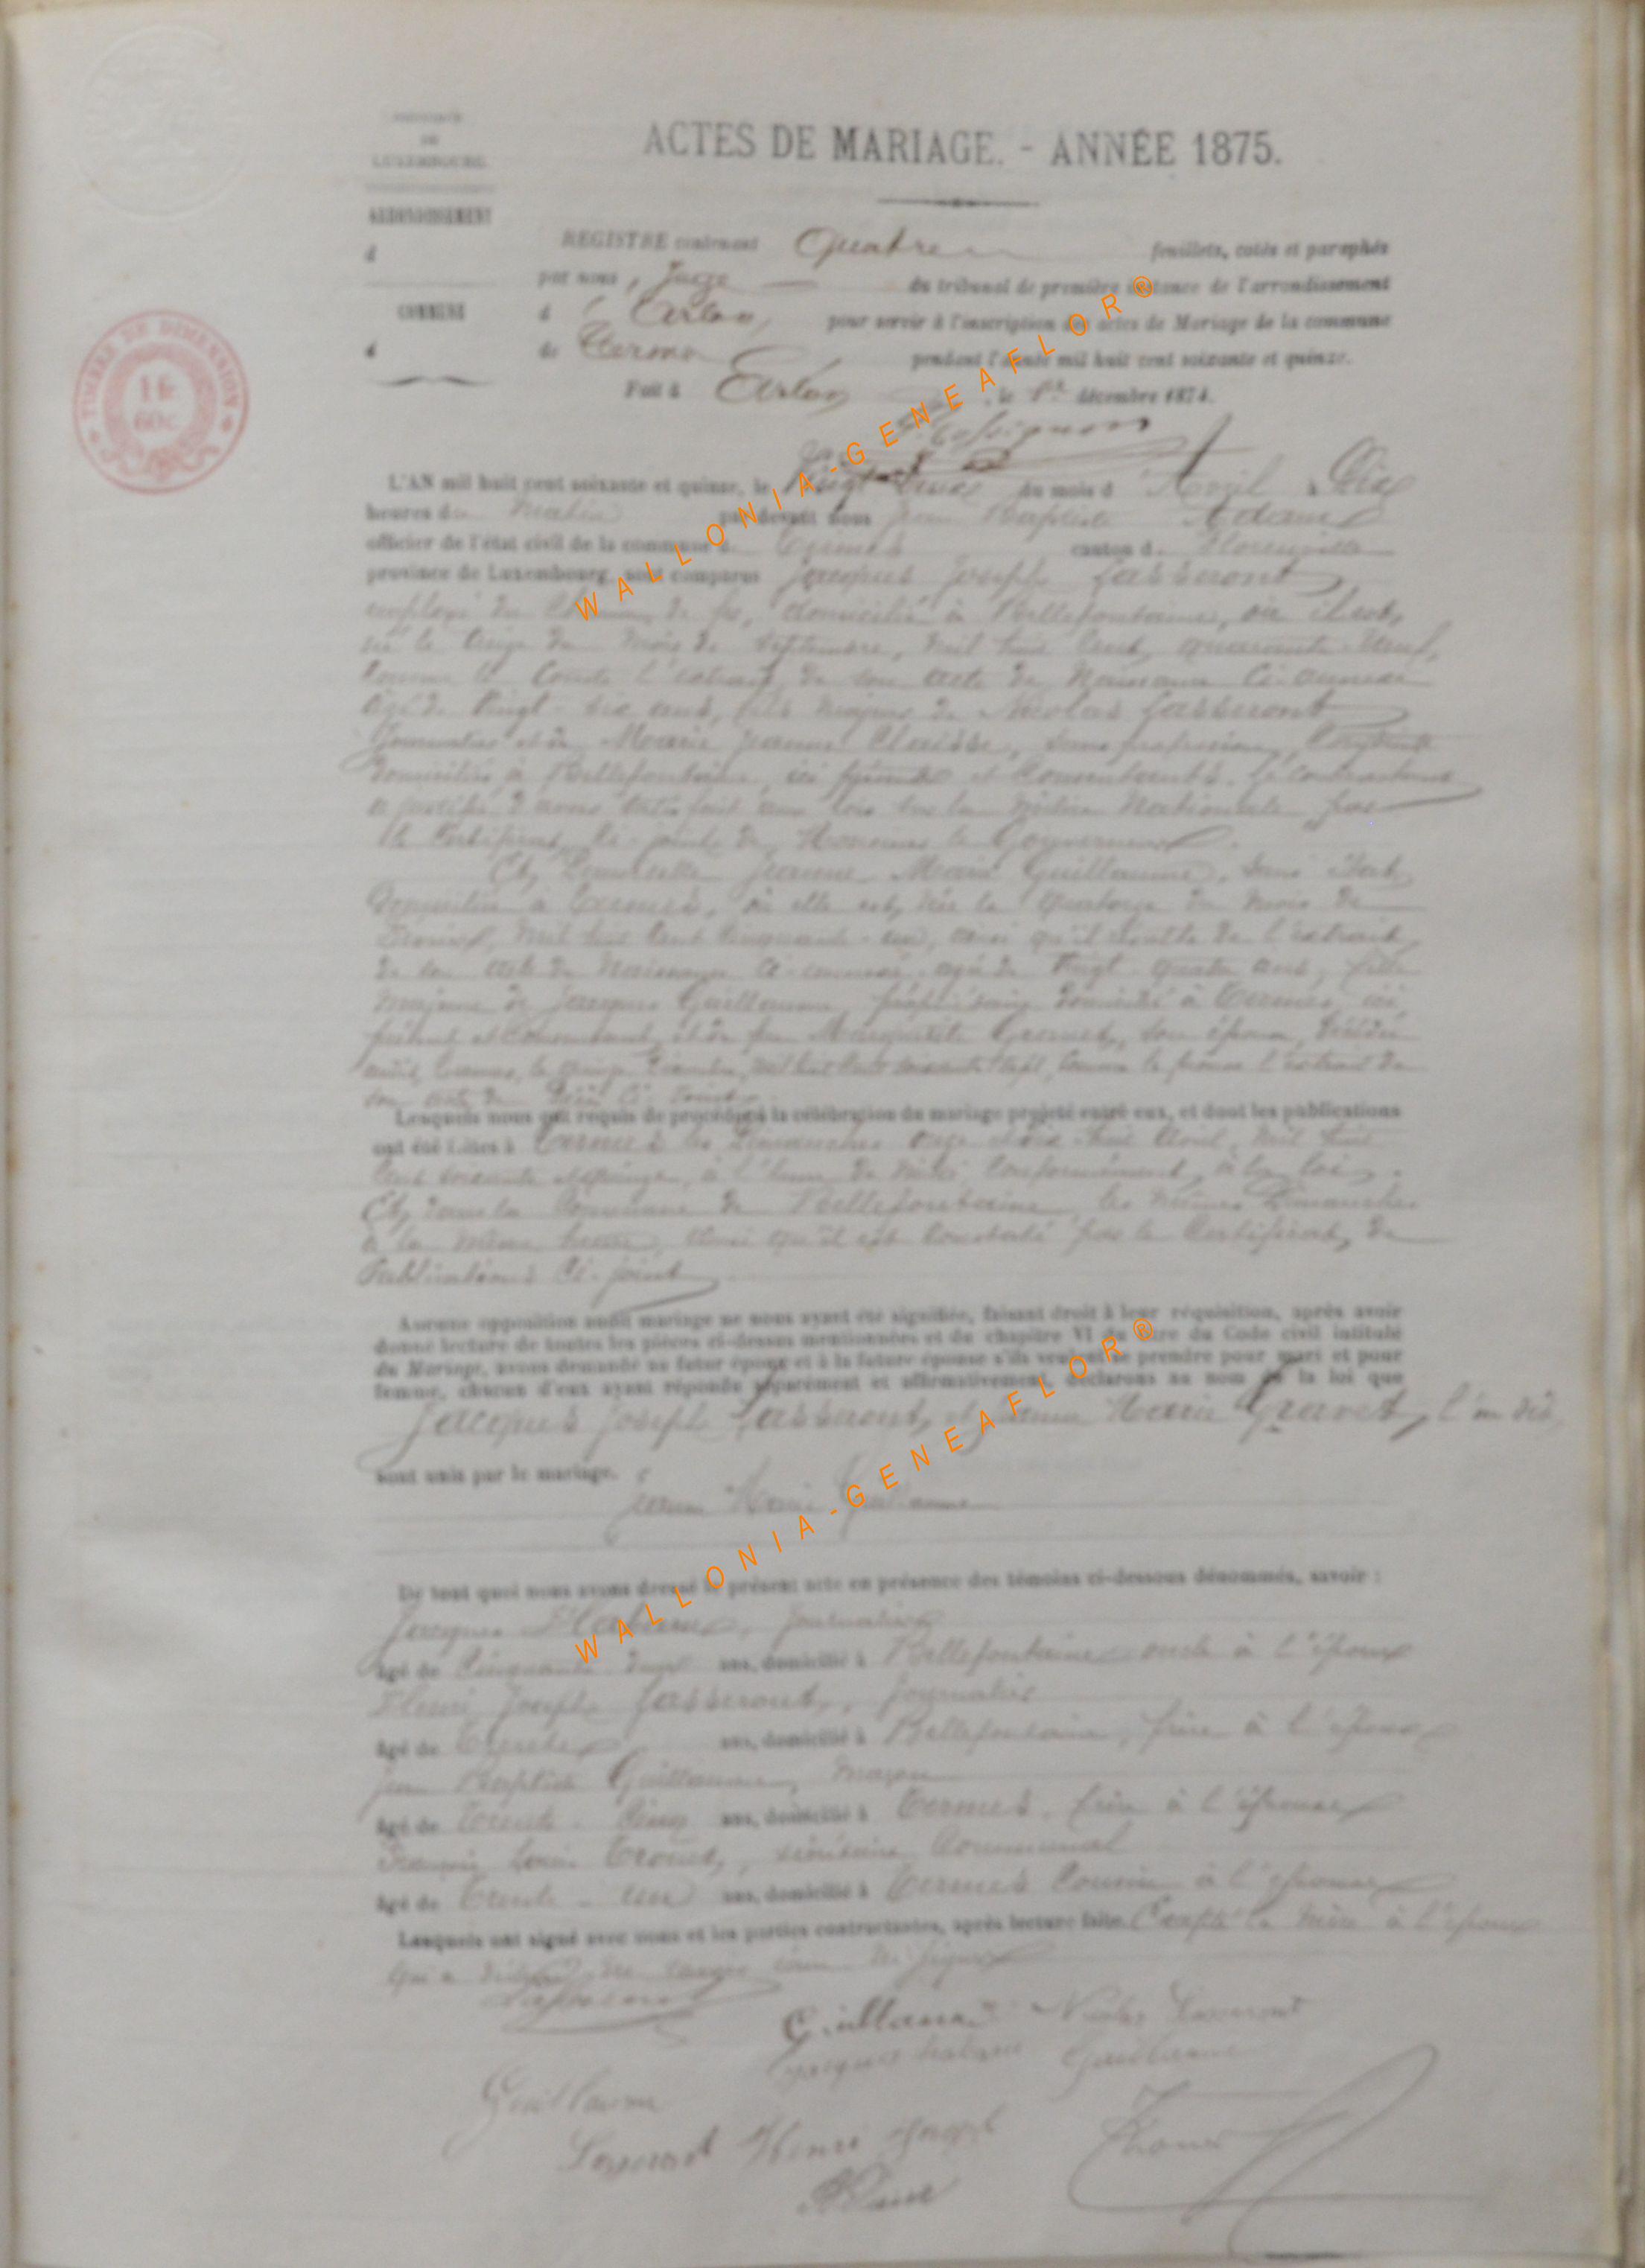 PROVINCE
DE
LUXEMBOURG.
ARRONDISSEMENT
d
COMMUNE
d
TIMBRE DE DIMENSION
1 fr
60 c.
ACTES DE MARIAGE. - ANNÉE 1875.
REGISTRE contenant Quatre feuillets, cotés et paraphés
par nous, Juge du tribunal de première instance de l'arrondissement
d'Arlon, pour servir à l'inscription des actes de Mariage de la commune
de Termes pendant l'année mil huit cent soixante et quinze.
Fait à Arlon, le 1er décembre 1874.
L'AN mil huit cent soixante et quinze, le Vingt deux du mois d'Avril à Dix
heures du Matin par devant nous Jean Baptiste Adam
officier de l'état civil de la commune de Termes canton de Florenville
province de Luxembourg, sont comparus Jacques Joseph Lasseront
employé du Chemin de fer, domicilié à Bellefontaine, où il est
né le treize du mois de Septembre, mil huit cent quarante-neuf,
comme le constate l'extrait de son acte de Naissance Ci-annexé
âgé de Vingt-six ans, fils majeur de Nicolas Lasseront
Journalier et de Marie Jeanne Claisse, sans profession, Conjoints
domiciliés à Bellefontaine, ici présents et Consentants. Le contractant
a justifié d'avoir satisfait aux lois sur la milice Nationale par
le Certificat Ci-joint de Monsieur le Gouverneur.
Et Demoiselle Jeanne Marie Guillaume, sans état,
Domiciliée à Termes, où elle est née le Quatorze du mois de
mil huit Cent Cinquante-un, ainsi qu'il résulte de l'extrait
de son acte de Naissance Ci-annexé, âgée de Vingt-quatre ans, fille
majeure de Jacques Guillaume, propriétaire domicilié à Termes, ici
présent et Consentant, et de feu Marguerite Gravet, son épouse, décédée
audit Termes, le mil huit Cent soixante sept, comme le prouve l'extrait de
son acte de Décès Ci-joint.
Lesquels nous ont requis de procéder à la célébration du mariage projeté entre eux, et dont les publications
ont été faites à Termes les Dimanches onze et dix-huit Avril, mil huit
Cent soixante et quinze, à l'heure de midi, Conformément à la loi.
Et dans la Commune de Bellefontaine, les mêmes Dimanches
à la même heure, ainsi qu'il est Constaté par le Certificat de
Publications Ci-joint.
Aucune opposition audit mariage ne nous ayant été signifiée, faisant droit à leur réquisition, après avoir
donné lecture de toutes les pièces ci-dessus mentionnées et du chapitre VI du titre du Code civil intitulé
du Mariage, avons demandé au futur époux et à la future épouse s'ils veulent se prendre pour mari et pour
femme, chacun d'eux ayant répondu séparément et affirmativement, déclarons au nom de la loi que
Jacques Joseph Lasseront, et Jeanne Marie Gravet, l'on dit,
sont unis par le mariage.
Jeanne Marie Guillaume
De tout quoi nous avons dressé le présent acte en présence des témoins ci-dessous dénommés, savoir :
Jacques Habran, Journalier
âgé de Cinquante deux ans, domicilié à Bellefontaine oncle à l'époux
Henri Joseph Lasseront, Journalier
âgé de Trente ans, domicilié à Bellefontaine, frère à l'époux
Jean Baptiste Guillaume, Maçon
âgé de Trente-Cinq ans, domicilié à Termes, frère à l'épouse
François Louis secrétaire Communal
âgé de Trente-un ans, domicilié à Termes Cousin à l'épouse
Lesquels ont signé avec nous et les parties contractantes, après lecture faite. Excepté la mère à l'époux
qui a déclaré ne
Lasseront
Guillaume Nicolas Lasseront
Jacques habran Guillaume
Guillaume
Lasseront Henri Joseph
Adam
WALLONIA-GENEAFLOR®
WALLONIA-GENEAFLOR®